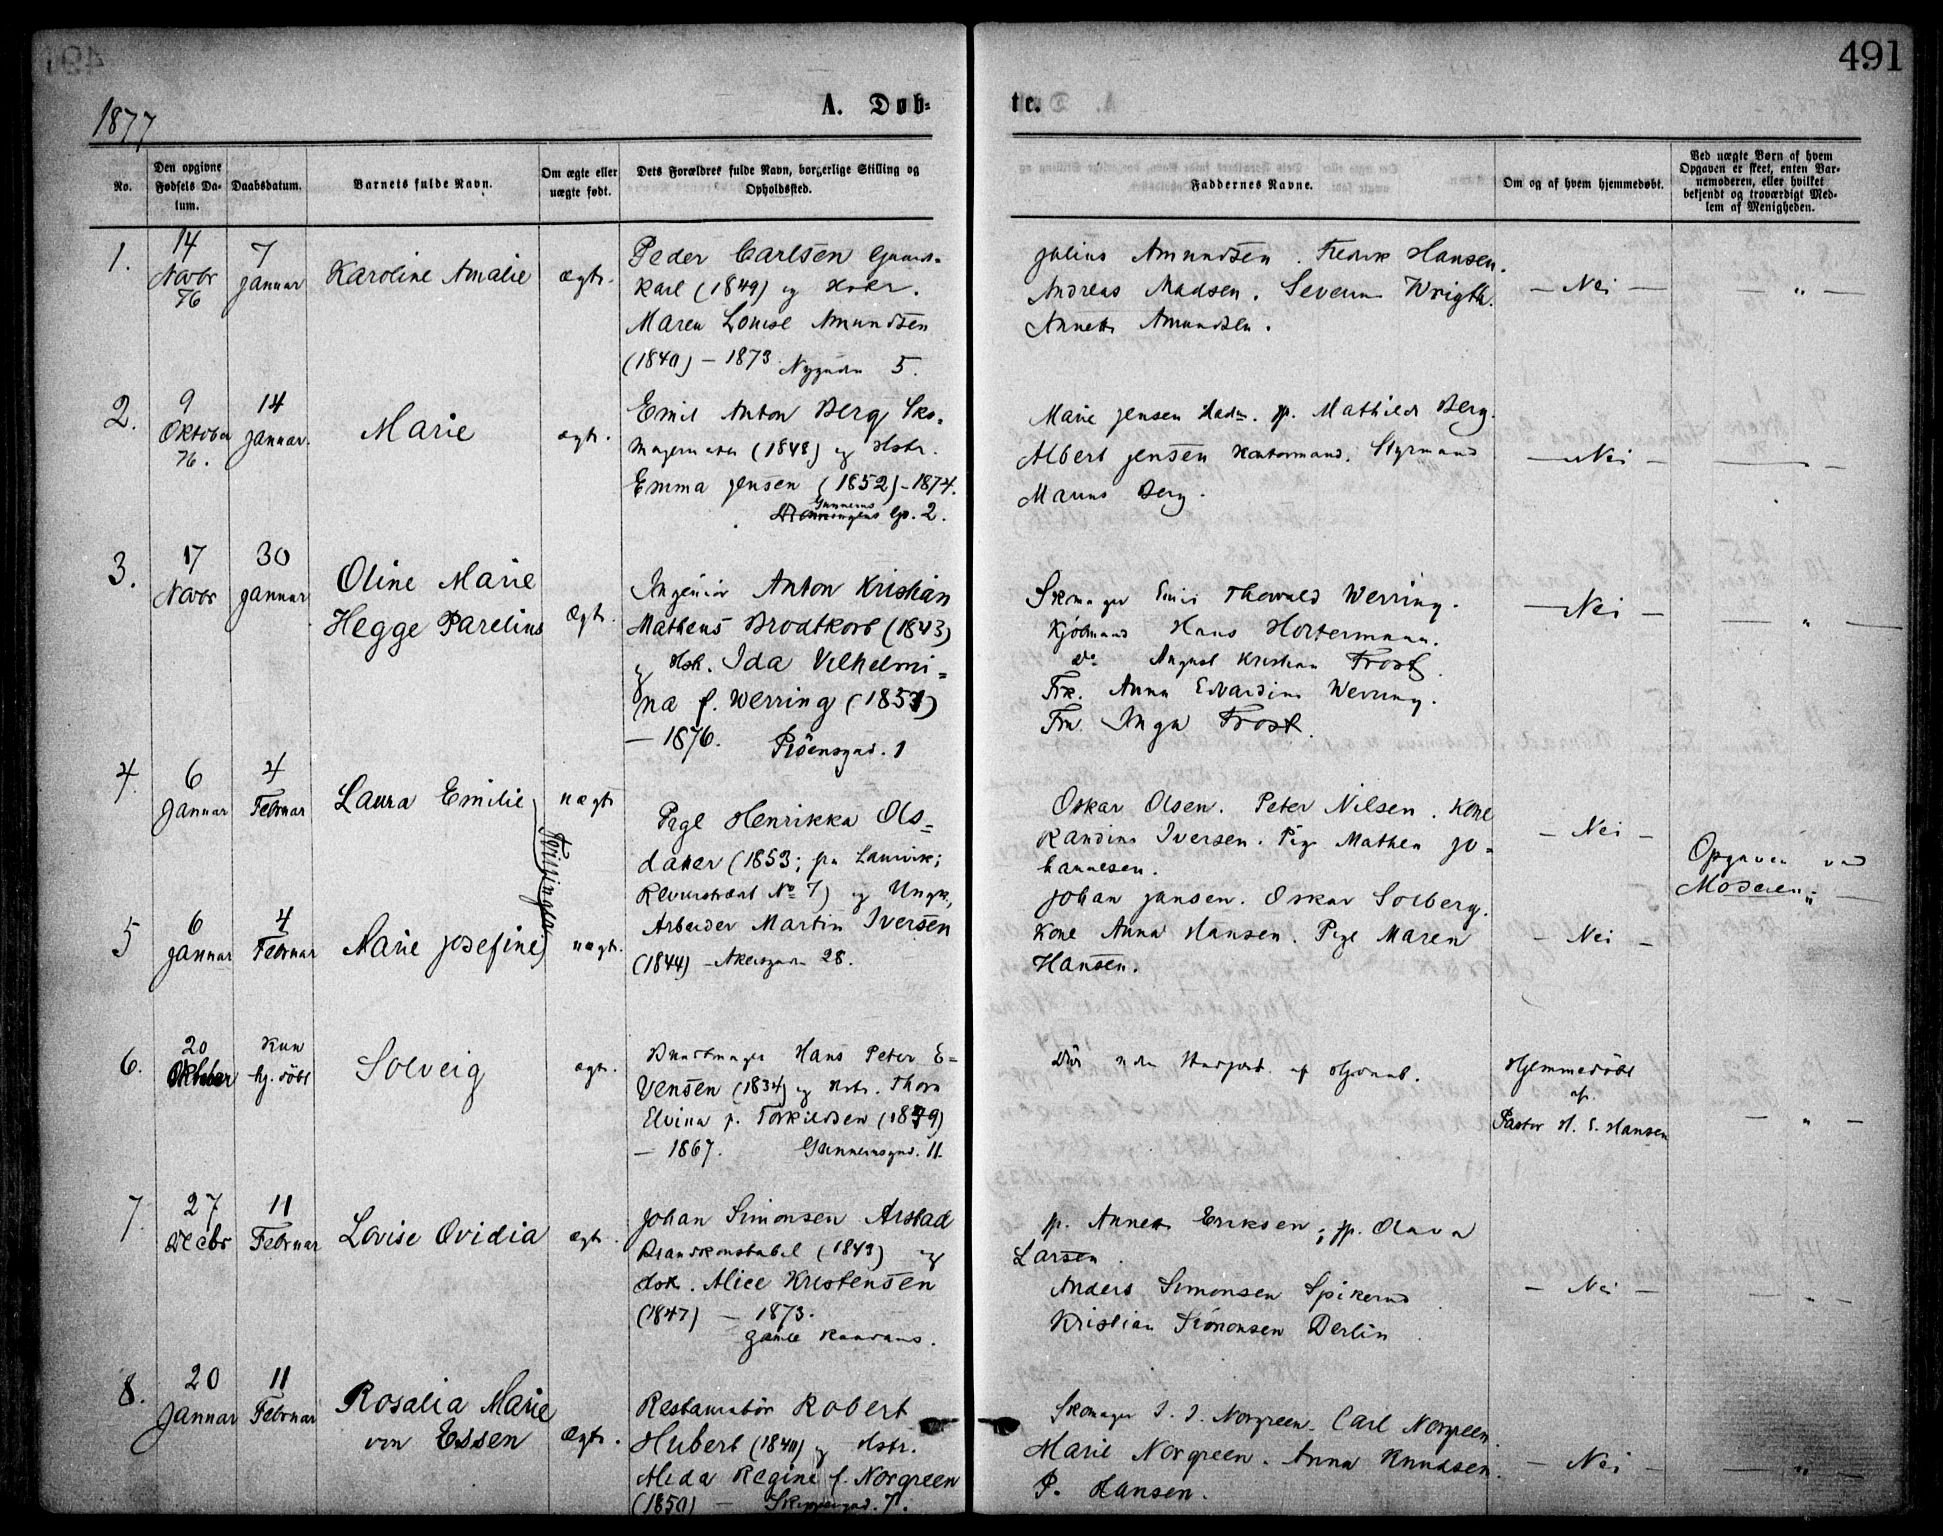 491
1877
A. Døb-
te.
No.
Den opgivne Fødsels Da-tum.
Daabsdatum.
Barnets fulde Navn.
Om ægte eller uægte født.
Dets Forældres fulde Navn, borgerlige Stilling og Opholdssted.
Faddernes Navne.
Om og af hvem hjemmedøbt.
Ved uægte Børn af hvem Opgaven er skeet, enten Bar-nemoderen, eller hvilket bekjendt og troværdigt Med-lem af Menigheden.
1.
14 Novbr 76
7 Januar
Karoline Amalie
ægte.
Peder Carlsen Gaards-
karl (1849) og
Maren Louise Amundsen
(1840) – 1873 5.
Julius Amundsen. Fredrik Hansen.
Andreas Madsen. Severin Wrigth.
Annette Amundsen.
– Nei –
– „ –
2.
9 Oktober 76.
14 Januar.
Marie
ægte.
Emil Anton Berg Sko-
magermester (1848) og Hstr.
Emma Jensen (1852) – 1874.
Gunnerus G. 2.
Marie Jensen Mathilde Berg.
Albert Jensen Kontormand. Styrmand
Marius Berg.
– Nei –
3.
17 Novbr
30 Januar
Oline Marie
Hegge Parelius
Ægte.
Ingeniør Anton Kristian
Matheus Brodtkorb (1843)
og Hsk. Ida Vilhelmi-
na f. Werring (1851)
– 1876. 1
Skomager Emil Thorvald Werring.
Kjøbmand Hans Hortermann.
Do August Kristian Frost.
Frk. Anna Edvardine Werring.
Fru Inga Frost.
– Nei –
– „ –
4.
6 Januar
4 Februar
Laura Emilie
uægte
Tvillinger
Pige Henrikka Ols-
datter (1853; fra Laurvik;
No 7) og Ungk.,
Arbeider Martin Iversen
(1844) – Akersgaden 28.
Oskar Olsen. Peter Nilsen. Kone
Randine Iversen. Pige Mathea Jo-
hannesen.
– Nei –
Opgaven ved
Moderen „ –
5
6 Januar
4 Februar
Marie Josefine
uægte.
Johan Jansen. Oskar Solberg.
Kone Anna Hansen. Pige Maren
Hansen.
– Nei –
6.
20 Oktober
Kun hj. døbt
Solveig
ægte.
Buntmager Hans Peter E-
vensen (1834) og Hstr. Thora
Elvina f. Torkildsen (1839)
– 1867. Gunnerusgd. 11.
Død
Hjemmedøbt
af
Pastor H. E. Hansen
– „ –
7.
27 Decbr
11 Februar
Lovise Ovidia
ægte.
Johan Simonsen Arstad
Brandkonstabel (1843) og
Hsk. Alice Kristensen
(1847) – 1873.
gamle
p. Annette Eriksen; p. Olava
Larsen.
Anders Simonsen Spikerud
Kristian Simonsen Berlin
– Nei –
– „ –
8.
20 Januar
11 Februar
Rosalia Marie
von Essen
Ægte.
Restauratør Robert
Hubert (1840) og Hstr.
Alida Regine f. Norgreen
(1850) – Skippergad. 7.
Skomager J. J. Norgreen. Carl Norgreen.
Marie Norgreen. Anna Knudsen.
P. Hansen.
– Nei –
– „ –